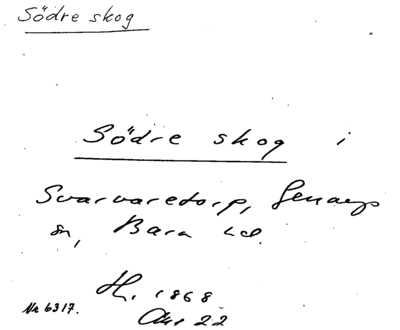 Södre skog
Södre skog i
Svarvaretorp, Genarps
sn, Bara hd.
H. 1868
Nr 6317.
22